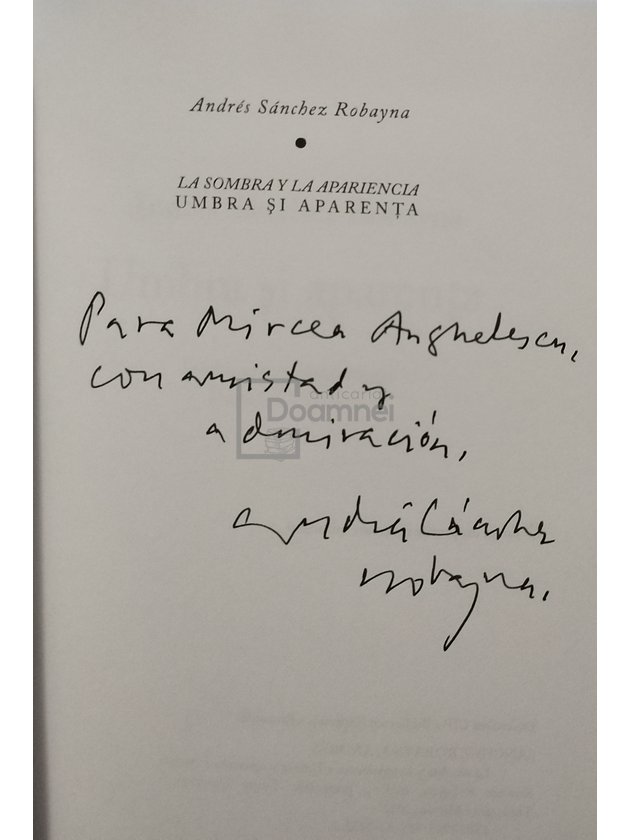 Andrés Sánchez Robayna
LA SOMBRA Y LA APARIENCIA
UMBRA ȘI APARENȚA
Para Mircea Anghelescu,
con amistad y
anticariat
Doamnei
admiración,
Andrés Sánchez
Robayna.